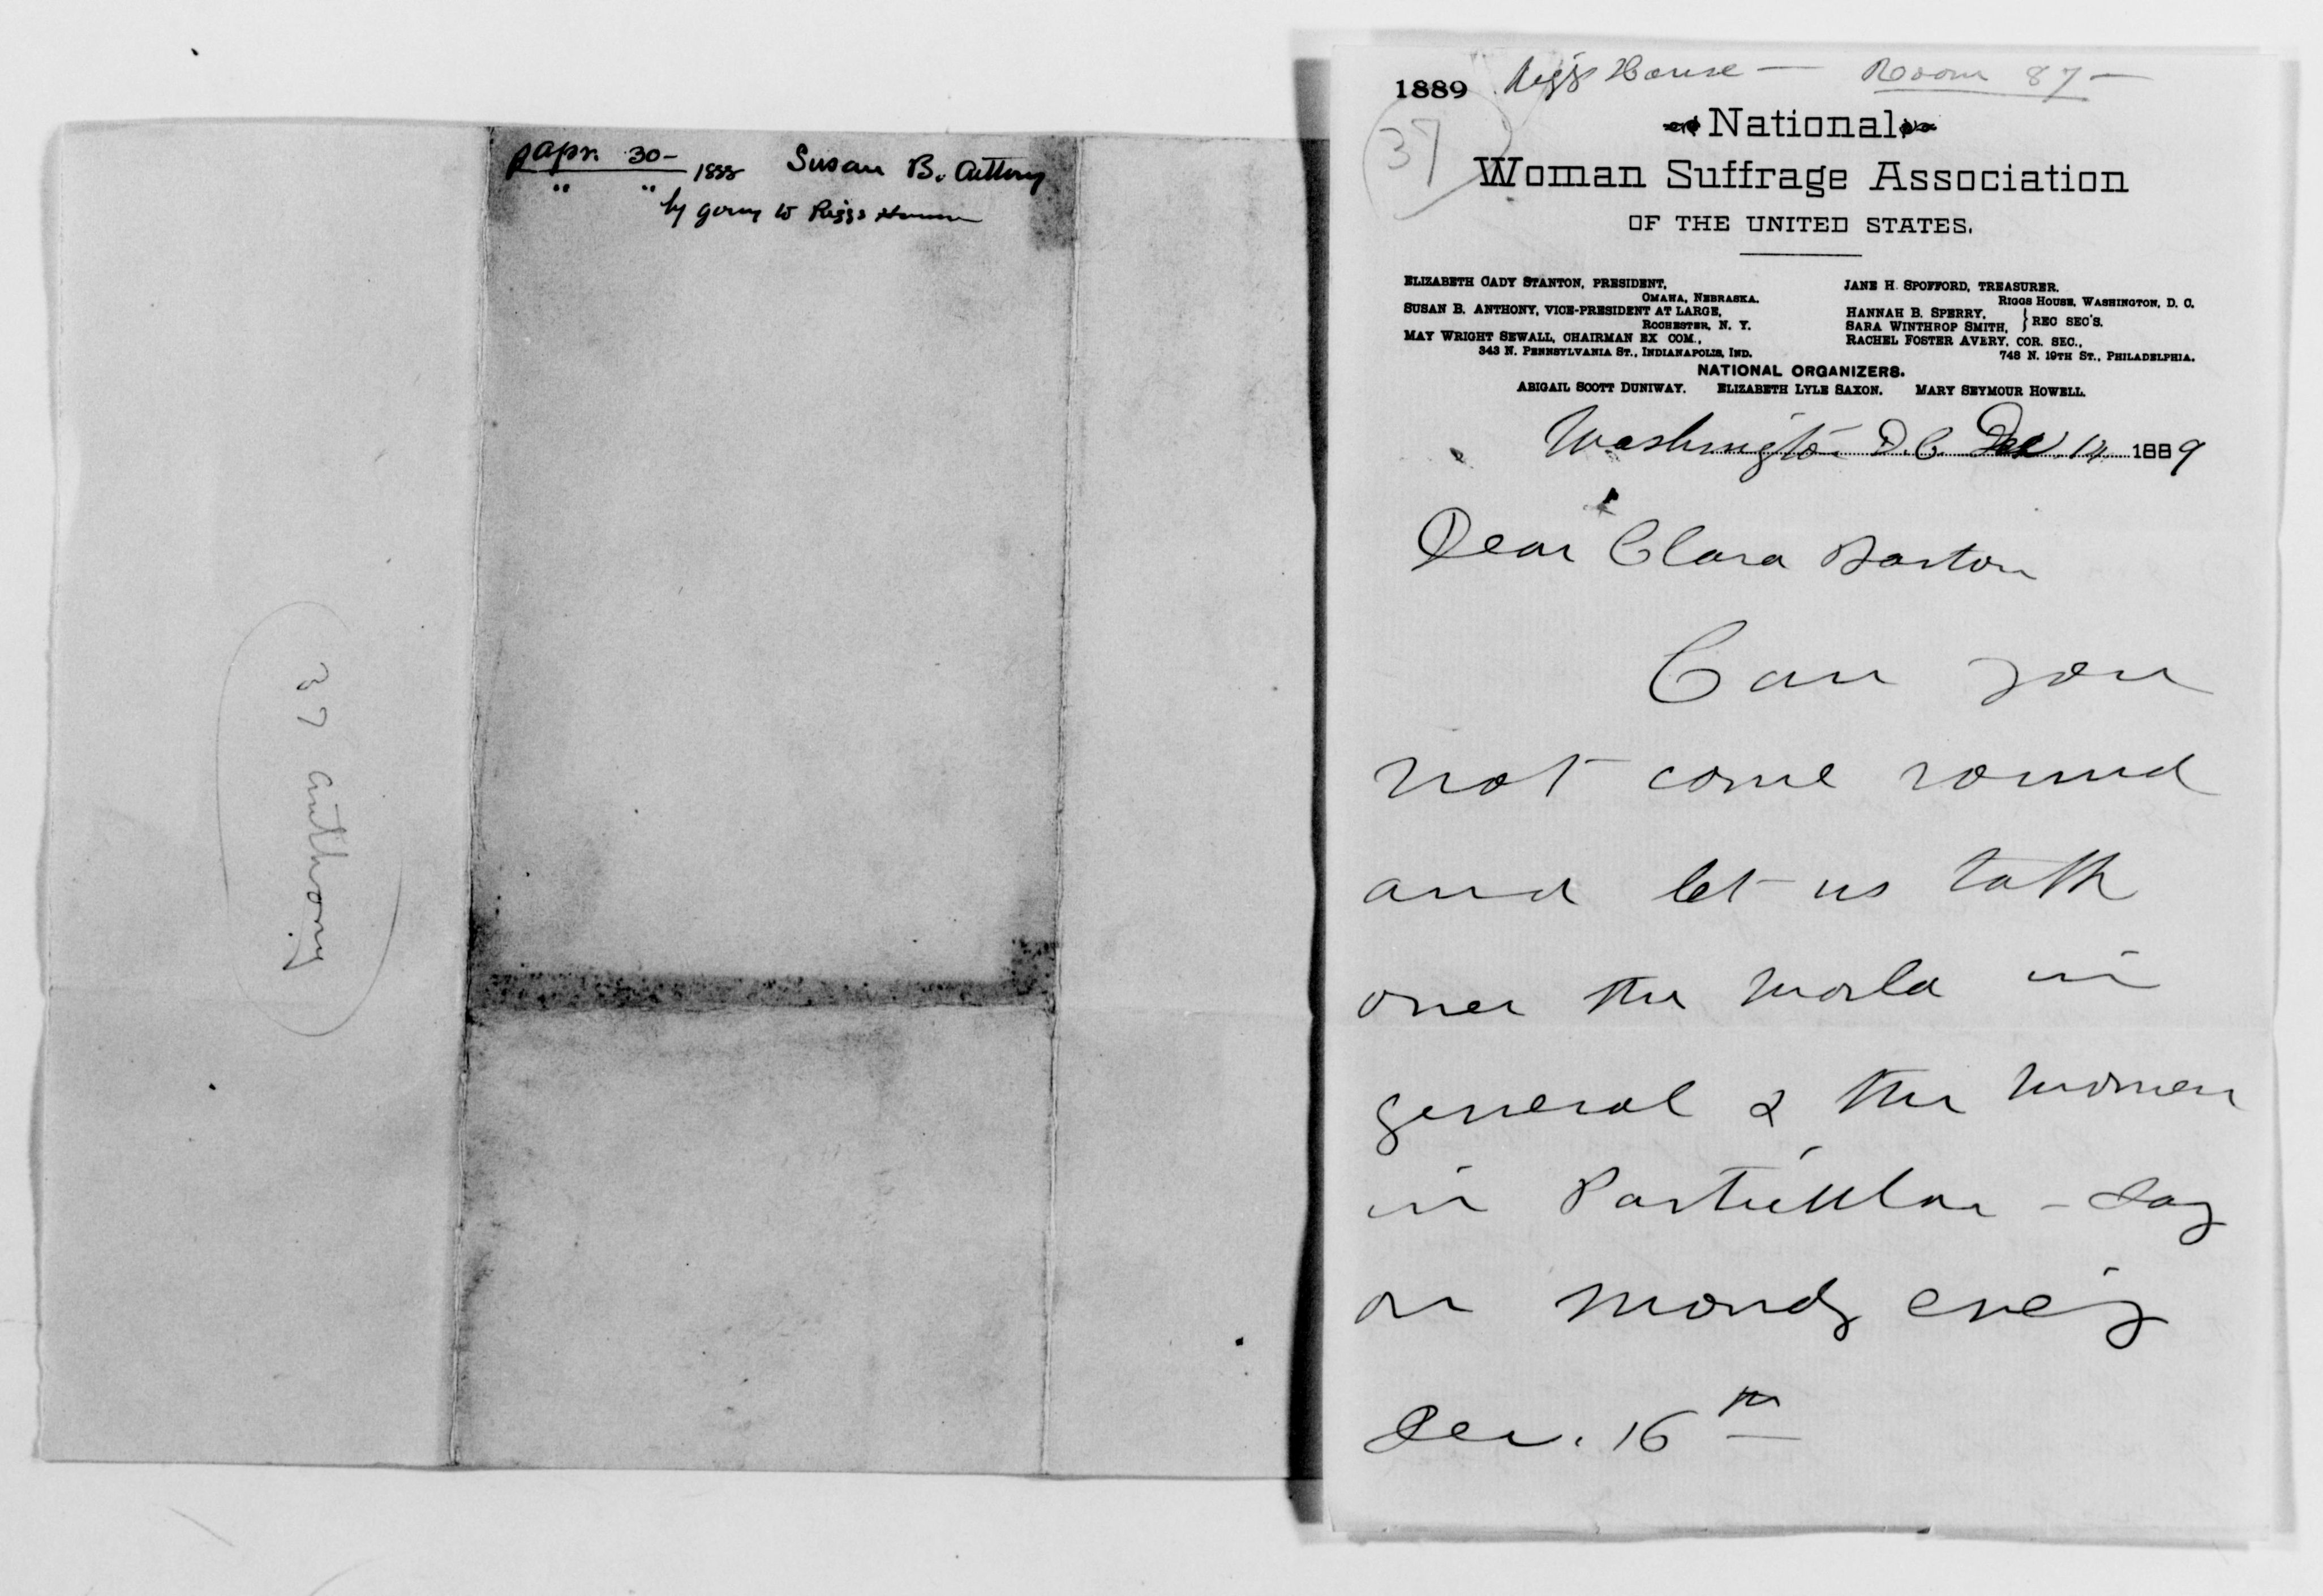 Apr. 30- 1888 Susan B. Anthony
" " by going to Riggs House
37 Anthony
1889 Riggs House — Room 87 —
37
National
Woman Suffrage Association
OF THE UNITED STATES.
ELIZABETH CADY STANTON, PRESIDENT,
OMAHA, NEBRASKA.
SUSAN B. ANTHONY, VICE-PRESIDENT AT LARGE,
ROCHESTER, N. Y.
MAY WRIGHT SEWALL, CHAIRMAN EX COM.,
343 N. PENNSYLVANIA ST., INDIANAPOLIS, IND.
JANE H. SPOFFORD, TREASURER.
RIGGS HOUSE, WASHINGTON, D. C.
HANNAH B. SPERRY,
SARA WINTHROP SMITH, } REC SEC'S.
RACHEL FOSTER AVERY, COR. SEC.,
748 N. 19TH ST., PHILADELPHIA.
NATIONAL ORGANIZERS.
ABIGAIL SCOTT DUNIWAY. ELIZABETH LYLE SAXON. MARY SEYMOUR HOWELL.
Washington D.C. Dec. 14 1889
Dear Clara Barton
Can you
not come round
and let us talk
over the world in
general & the women
in Particular - say
on Mondy eve'g
Dec. 16th